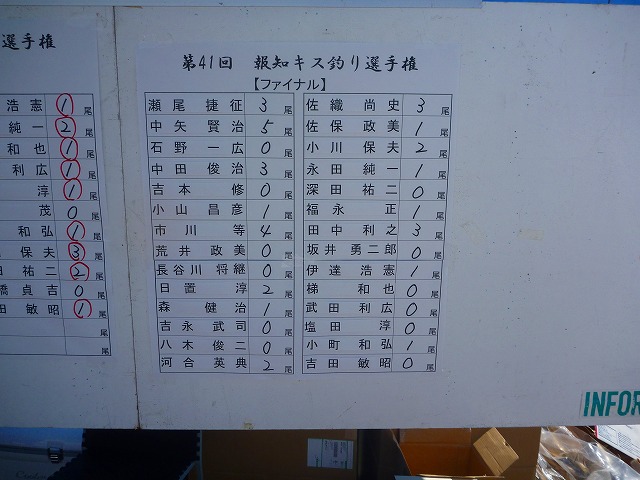 選手権
浩憲 1 尾
純一 2 尾
和也 1 尾
利広 1 尾
淳 1 尾
茂 0 尾
和弘 1 尾
保夫 3 尾
祐二 2 尾
橋貞吉 0 尾
田敏昭 1 尾
尾
尾
第41回 報知キス釣り選手権
【ファイナル】
瀬尾 捷征 3 尾
中矢 賢治 5 尾
石野 一広 0 尾
中田 俊治 3 尾
吉本 修 0 尾
小山 昌彦 1 尾
市川 等 4 尾
荒井 政美 0 尾
長谷川 将継 0 尾
日置 淳 2 尾
森 健治 1 尾
吉永 武司 0 尾
八木 俊二 0 尾
河合 英典 2 尾
佐織 尚史 3 尾
佐保 政美 1 尾
小川 保夫 2 尾
永田 純一 1 尾
深田 祐二 0 尾
福永 正 1 尾
田中 利之 3 尾
坂井 勇二郎 0 尾
伊達 浩憲 1 尾
梯 和也 0 尾
武田 利広 0 尾
塩田 淳 0 尾
小町 和弘 1 尾
吉田 敏昭 0 尾
INFOR